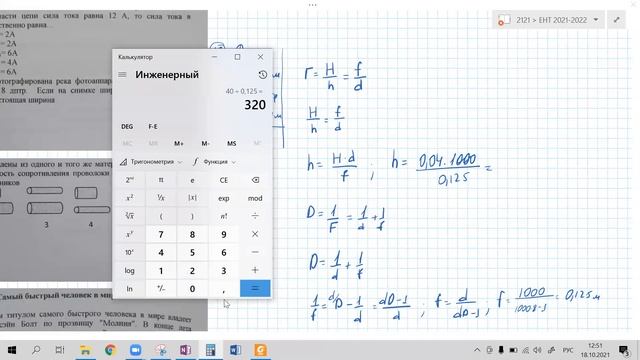 2121 > ЕНТ 2021-2022
части цепи сила тока равна 12 А, то сила тока в
ственно равна...
= 2А
= 2А
= 6А
= 4А
= 6А
тографирована река фотоаппар
8 дптр. Если на снимке шир
стоящая ширина
лены из одного и того же мате
ость сопротивления проволоки
ников
3 4
Самый быстрый человек в мире
м титулом самого быстрого человека в мире владеет
сейн Болт по прозвищу "Молния". В конце лета
Калькулятор
Инженерный
40 ÷ 0,125 =
320
DEG F-E
MC MR M+ M- MS M˅
Тригонометрия Функция
2ⁿᵈ π e CE
x² ¹/x |x| exp mod
²√x ( ) n! ÷
xʸ 7 8 9 ×
10ˣ 4 5 6 −
log 1 2 3 +
ln +/- 0 , =
Г = H/h = f/d
H/h = f/d
h = H·d/f ; h = 0,04·1000/0,125 =
D = 1/F = 1/d + 1/f
D = 1/d + 1/f
1/f = D - 1/d = dD-1/d ; f = d/dD-1 ; f = 1000/1000·8-1 = 0,125 м
РУС
12:51
18.10.2021